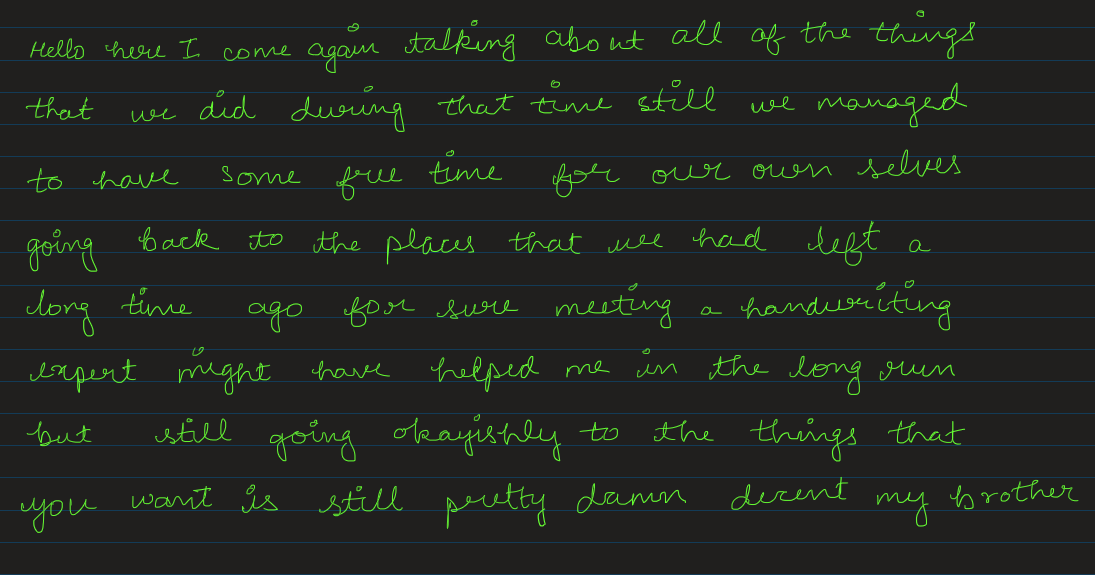 Hello here I come again talking about all of the things
that we did during that time still we managed
to have some free time for our own selves
going back to the places that we had left a
long time ago for sure meeting a handwriting
expert might have helped me in the long run
but still going okayishly to the things that
you want is still pretty damn decent my brother